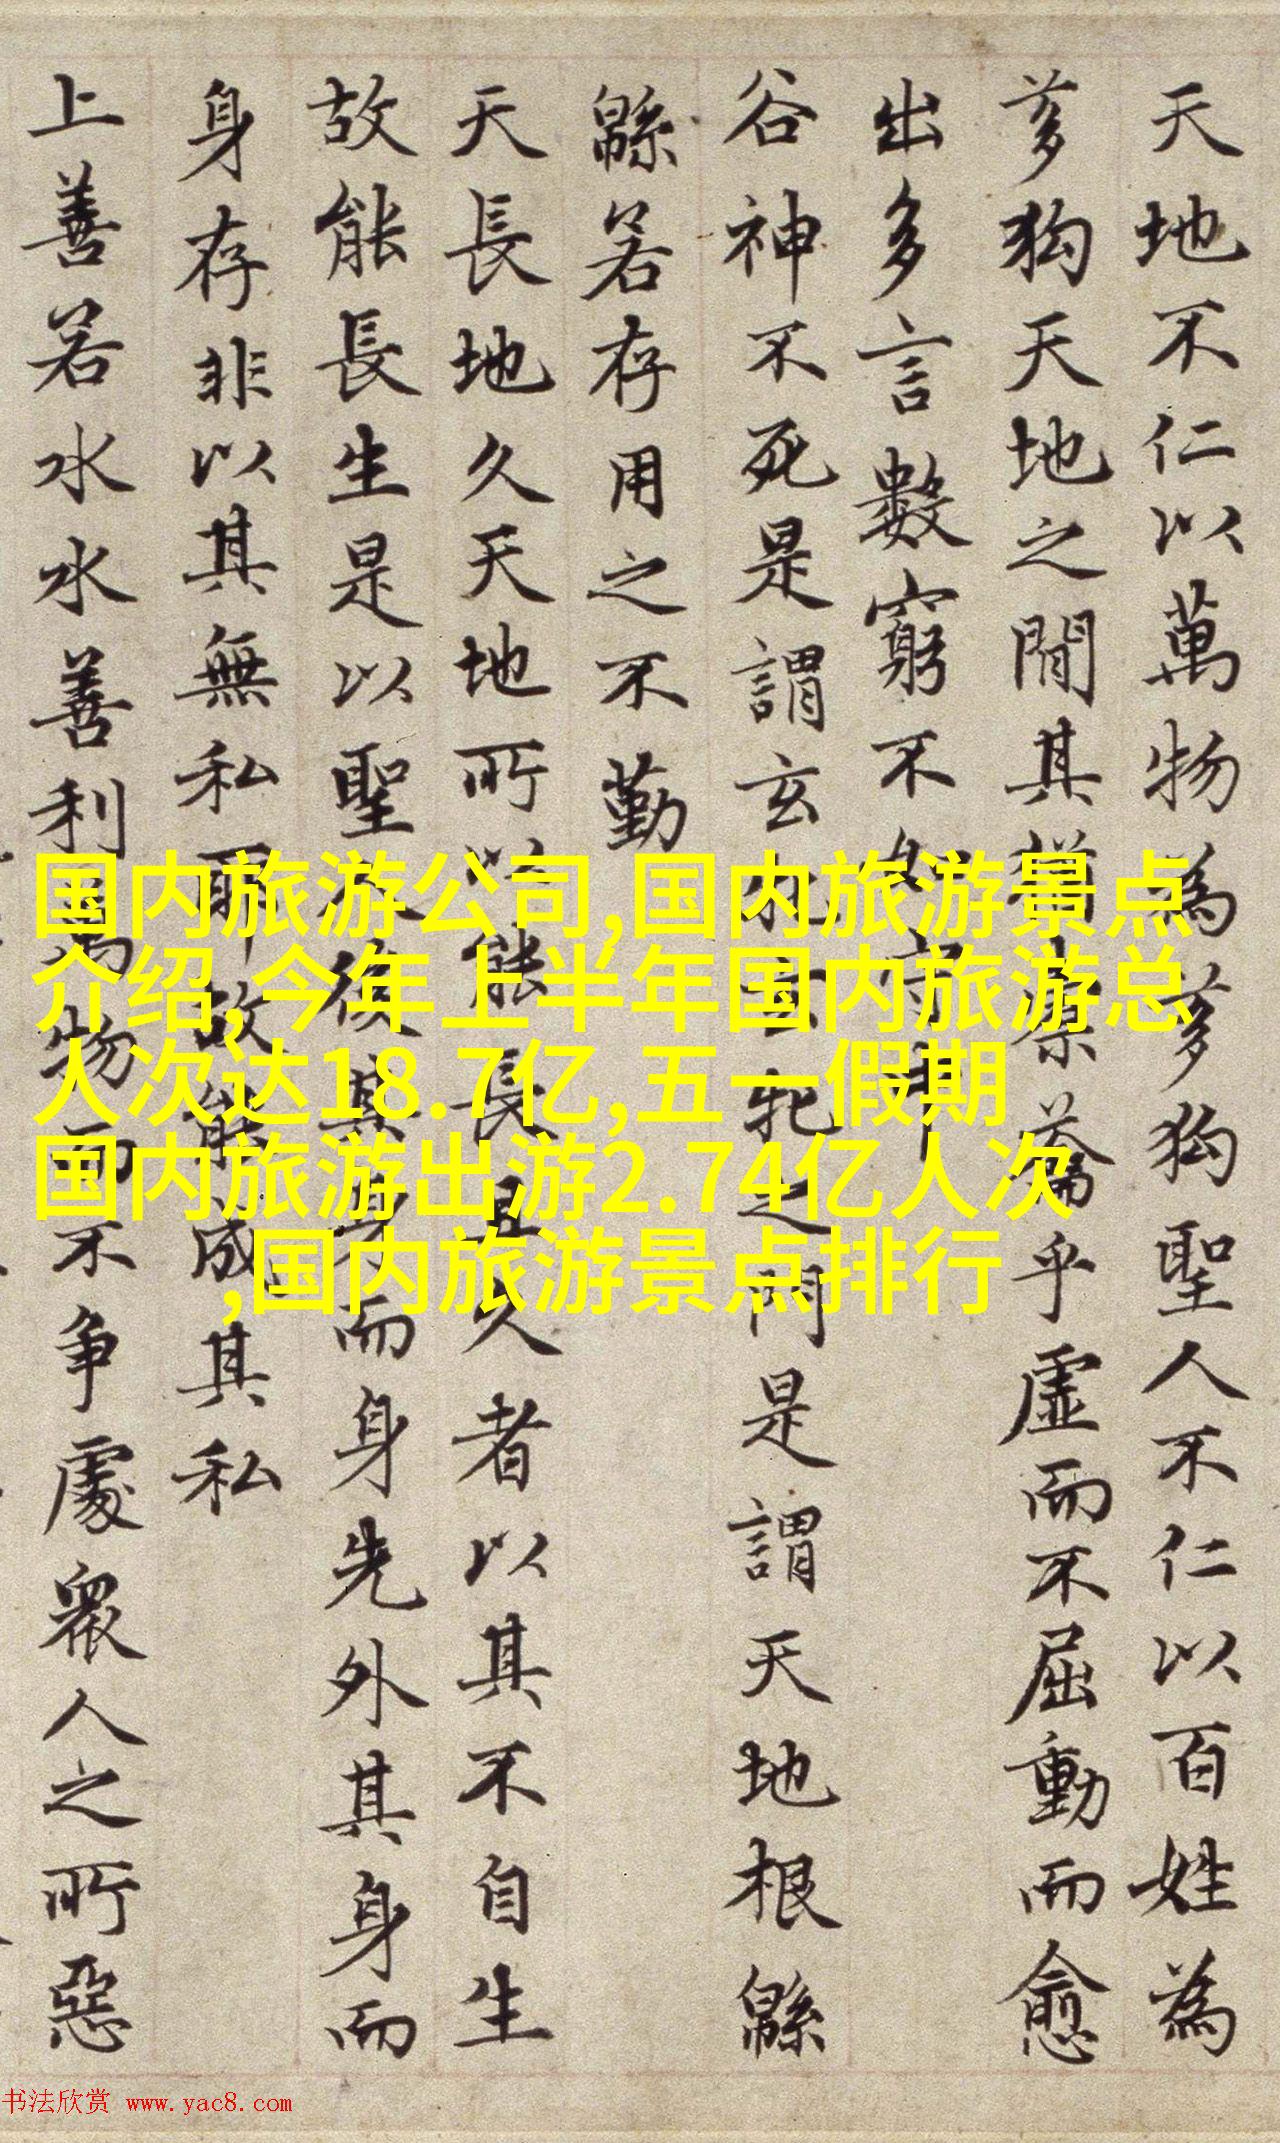 天地不仁以萬物為芻狗聖人不仁以百姓為
芻狗天地之間其猶橐籥乎虛而不屈動而愈
出多言數窮不如守中
谷神不死是謂玄牝玄牝之門是謂天地根緜
緜若存用之不勤
天長地久天地所以能長且久者以其不自生
故能長生是以聖人後其身而身先外其身而
身存非以其無私耶故能成其私
上善若水水善利萬物而不争處衆人之所惡
国内旅游公司,国内旅游景点
介绍,今年上半年国内旅游总
人次达18.7亿,五一假期
国内旅游出游2.74亿人次
,国内旅游景点排行
书法欣赏 www.yac8.com